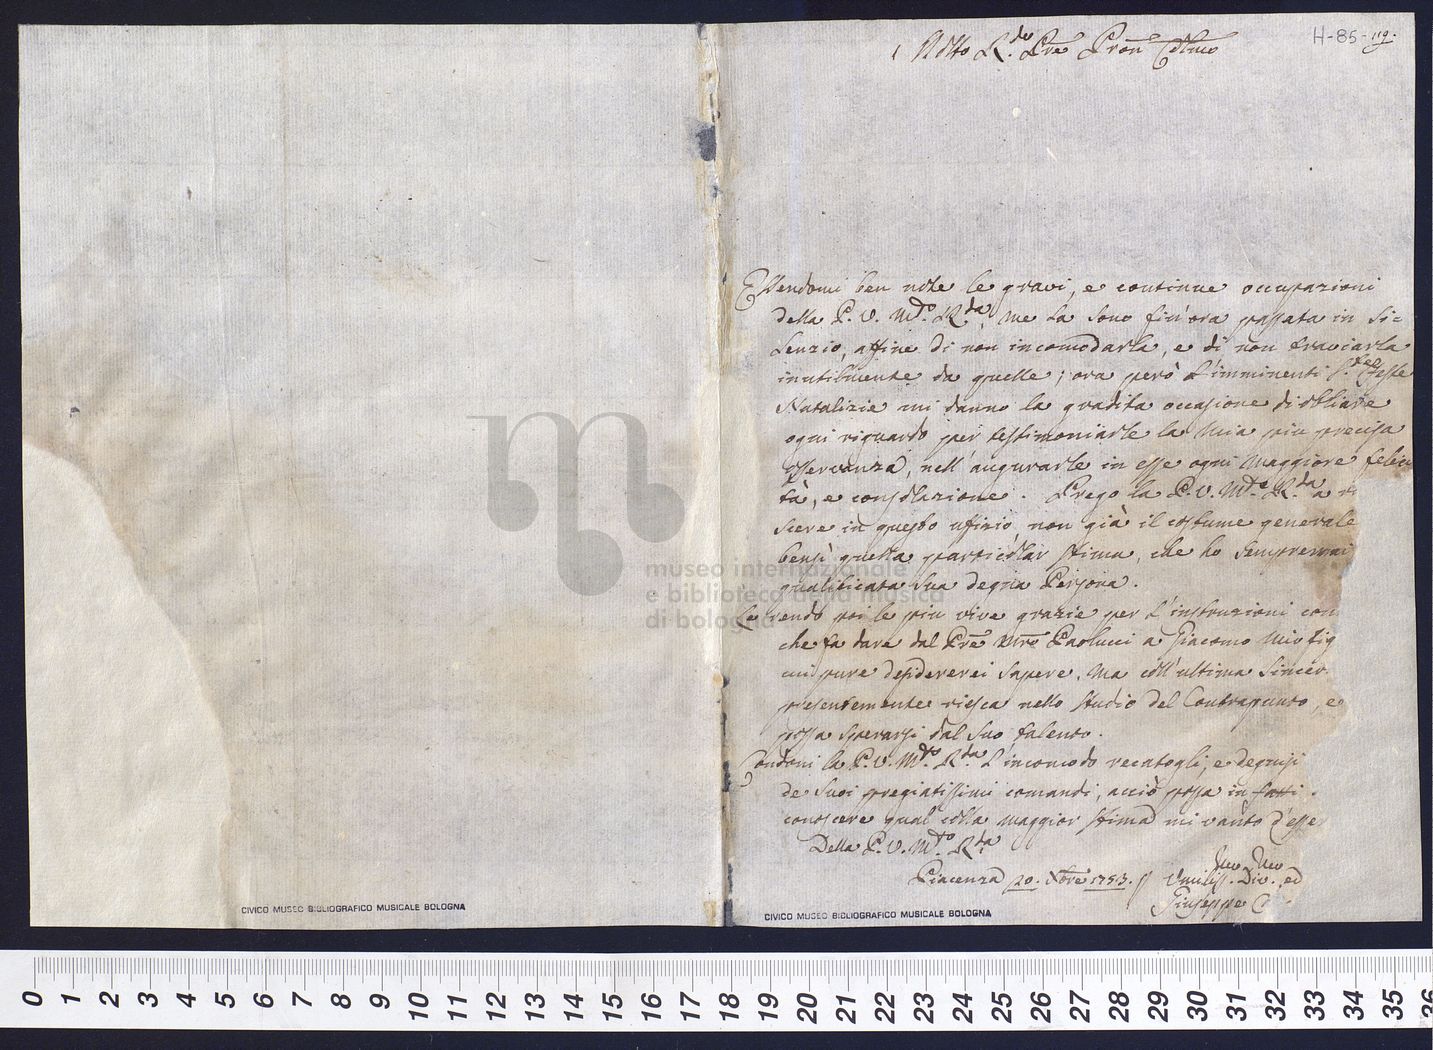 H-85-119.
Molto R.do Pre Pron Colmo
Essendomi ben note le gravi, e continue occupazioni
della P. V. M.to R.da, me la sono fin'ora passata in si=
lenzio, affine di non incomodarla, e di non traviarla
inutilmente da quelle; ora però l'imminenti S.te Feste
Natalizie mi danno la gradita occasione di obliare
ogni riguardo per testimoniarle la mia più precisa
osservanza, nell'augurarle in esse ogni maggiore felici
tà, e consolazione. Prego la P. V. M.to R.da a
scere in questo uffizio non già il costume generale
bensì quella particolar stima, che ho sempremai
qualificata sua degna Persona.
Le rendo poi le più vive grazie per l'instruzioni
che fa dare dal Pre Mro Paolucci a Giacomo mio fig
cui pure desidererei sapere, ma coll'ultima sincer
presentemente riesca nello studio del Contrapunto, e
possa sperarsi dal suo talento.
Condoni la P. V. M.to R.da l'incomodo recatogli, e degnisi
de suoi pregiatissimi comandi, acciò possa in fatti
conoscere qual colla maggior stima mi vanto d'esse
Della P. V. M.to R.da
Piacenza 20. Xbre 1753.
Umiliss. Div. ed
Giuseppe C
museo internazionale
e biblioteca della musica
di bologna
CIVICO MUSEO BIBLIOGRAFICO MUSICALE BOLOGNA
CIVICO MUSEO BIBLIOGRAFICO MUSICALE BOLOGNA
0 1 2 3 4 5 6 7 8 9 10 11 12 13 14 15 16 17 18 19 20 21 22 23 24 25 26 27 28 29 30 31 32 33 34 35 36